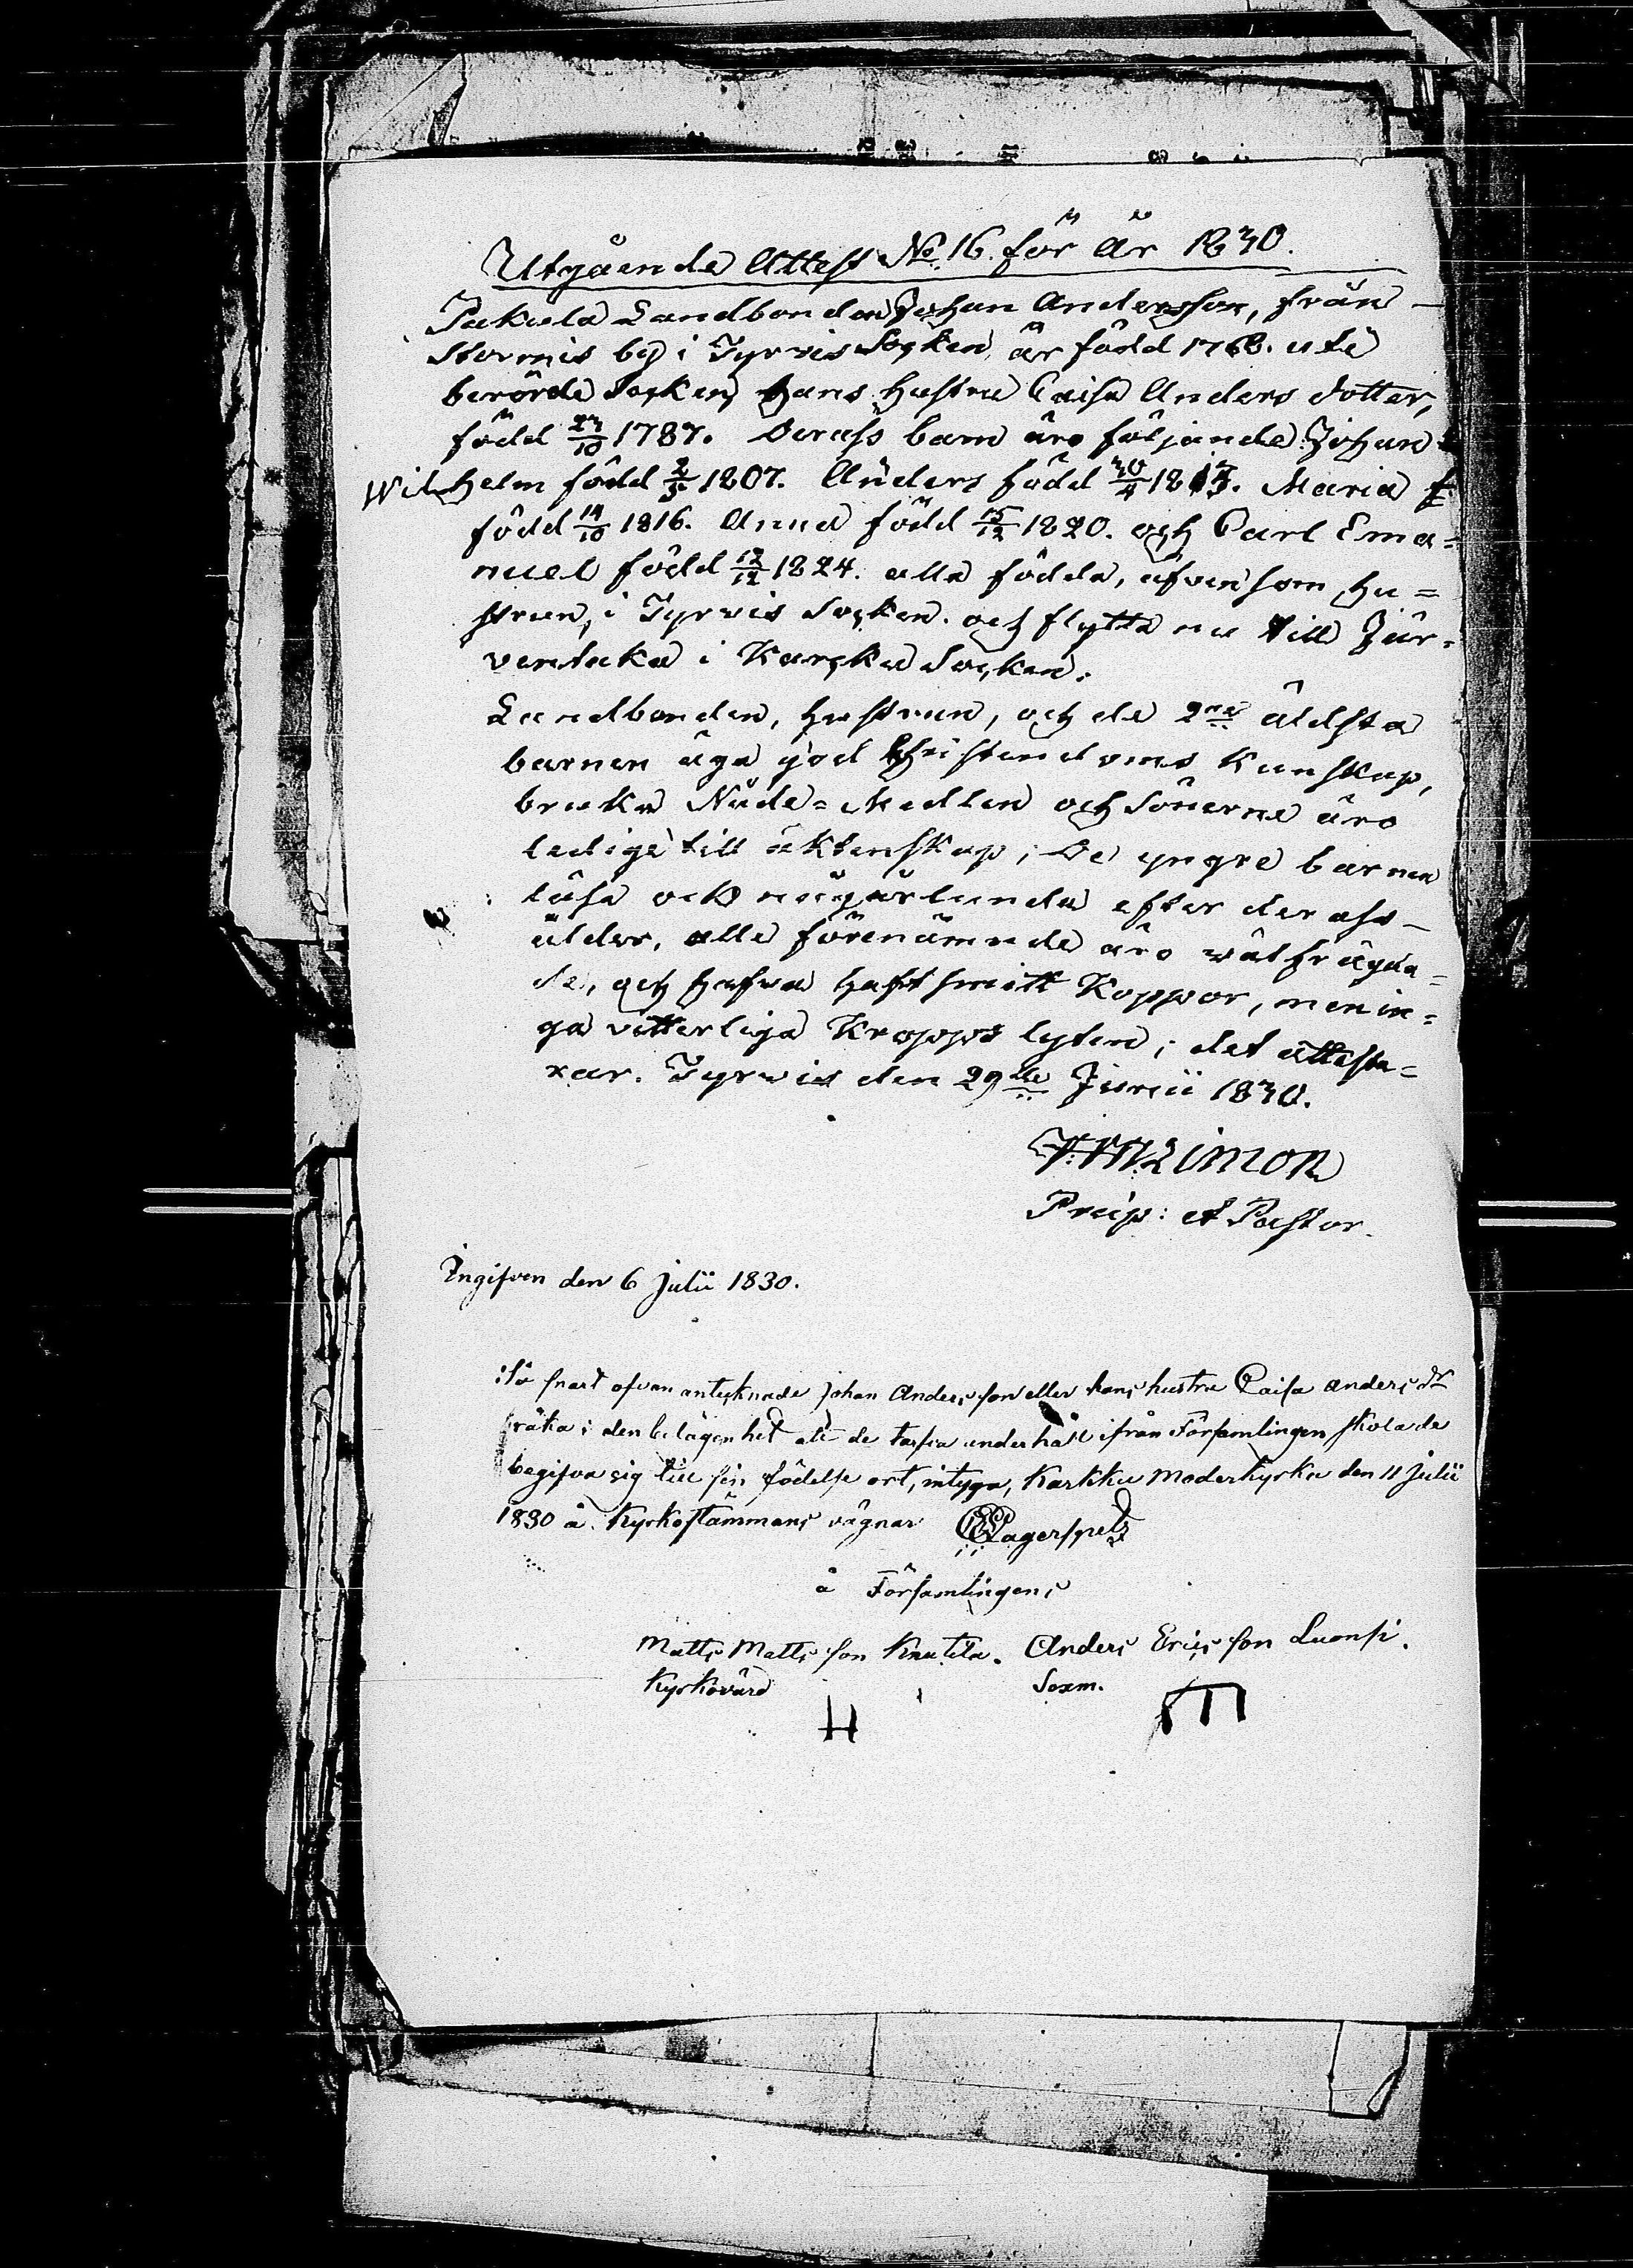 Utgående Attest No 16. för År 1830.
Pakula Landbonden Johan Andersson, från
Stormis by i Tyrvis Socken, är född 1768. uti
berörde Socken, hans hustru Caisa Anders dotter,
född 23/10 1787. Derass barn äro följande: Johan
Wilhelm född 2/5 1807. Anders född 30/4 1813. Maria
född 14/10 1816. Anna född 15/12 1820. och Carl Ema=
nuel född 12/12 1824. alla födda, äfvensom hu=
strun, i Tyrvis Socken. och flytta nu till Jär=
ventaka i Karcku Socken.
Landbonden, hustrun, och de 2ne äldsta
barnen äga god Christendoms Kunskap,
bruka Nåde=Medlen och Sönerne äro
ledige till äktenskap; De yngre barnen
läsa ock någorlunda efter derass
ålder, alle förenämnde äro wälfrägda=
de, och hafva haft smitt Koppor, men in=
ga vitterliga Kropps lyten; det atteste=
rar. Tyrvis den 29de Junii 1830.
F: M: Limon
Præp: et Pastor.
Ingifven den 6 Julii 1830.
Så snart ofvan antecknade Johan Andersson eller hans hustru Caisa Anders dr
råka i den belägenhet att de tarfva underhåll ifrån Församlingen skola de
begifva sig till sin födelse ort, intyga, Karkku Moderkyrka den 11 Julii
1830 å Kyrkostämmans vägnar Lagerspetz
å Församlingens
Matts Mattsson Knutila. Anders Ericsson Luonsi.
Kyrkovärd Sexm.